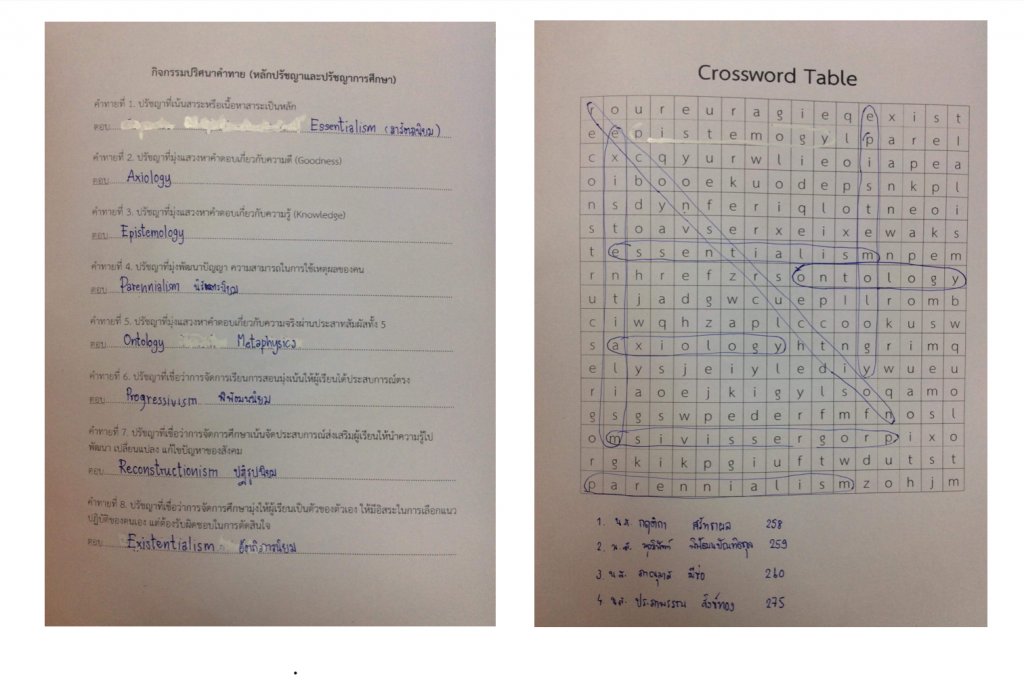 กิจกรรมปริศนาคำทาย (หลักปรัชญาและปรัชญาการศึกษา)
คำทายที่ 1. ปรัชญาที่เน้นสาระหรือเนื้อหาสาระเป็นหลัก
ตอบ Essentialism (สารัตถนิยม)
คำทายที่ 2. ปรัชญาที่มุ่งแสวงหาคำตอบเกี่ยวกับความดี (Goodness)
ตอบ Axiology
คำทายที่ 3. ปรัชญาที่มุ่งแสวงหาคำตอบเกี่ยวกับความรู้ (Knowledge)
ตอบ Epistemology
คำทายที่ 4. ปรัชญาที่มุ่งพัฒนาปัญญา ความสามารถในการใช้เหตุผลของคน
ตอบ Parennialism นิรันตรนิยม
คำทายที่ 5. ปรัชญาที่มุ่งแสวงหาคำตอบเกี่ยวกับความจริงผ่านประสาทสัมผัสทั้ง 5
ตอบ Ontology Metaphysics
คำทายที่ 6. ปรัชญาที่เชื่อว่าการจัดการเรียนการสอนมุ่งเน้นให้ผู้เรียนได้ประสบการณ์ตรง
ตอบ Progressivism พิพัฒนนิยม
คำทายที่ 7. ปรัชญาที่เชื่อว่าการจัดการศึกษาเน้นจัดประสบการณ์ส่งเสริมผู้เรียนให้นำความรู้ไป
พัฒนา เปลี่ยนแปลง แก้ไขปัญหาของสังคม
ตอบ Reconstructionism ปฏิรูปนิยม
คำทายที่ 8. ปรัชญาที่เชื่อว่าการจัดการศึกษามุ่งให้ผู้เรียนเป็นตัวของตัวเอง ให้มีอิสระในการเลือกแนว
ปฏิบัติของตนเอง แต่ต้องรับผิดชอบในการตัดสินใจ
ตอบ Existentialism อัตถิภาวนิยม
Crossword Table
r o u r e u r a g i e q e x i s t
e e p i s t e m o g y l p a r e l
c x c q y u r w l i e o i a p e a
o i b o o e k u o d e p s n k p l
n s d y n f e r i q l o t n e o i
s t o a v s e r x e i x e w a k s
t e s s e n t i a l i s m n p e m
r n h r e f z r s o n t o l o g y
u t j a d g w c u e p l l r o m b
c i w q h z a p l c c o o k u s w
s a x i o l o g y h t n g r i m q
e l y s j e i y l e d i y w u e u
r i a o e j k i g y l s o q a m o
g s g s w p e d e r f m f n o s l
o m s i v i s s e r g o r p i x o
r g k i k p g i u f t w d u t s t
p a r e n n i a l i s m z o h j m
1. น.ส. 258
2. น.ส. 259
3. น.ส. 260
4. น.ส. 275